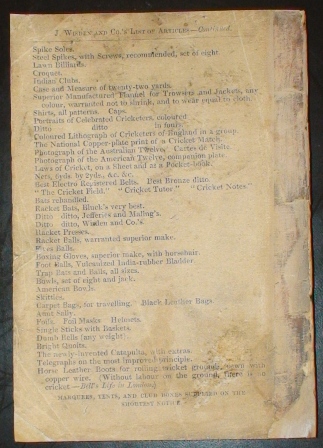 J. WISDEN AND CO.'S LIST OF ARTICLES—Continued.
Spike Soles.
Steel Spikes, with Screws, recommended, set of eight.
Lawn Billiards.
Croquet.
Indian Clubs.
Case and Measure of twenty-two yards.
Superior Manufactured Flannel for Trowsers and Jackets, any
colour, warranted not to shrink, and to wear equal to cloth.
Shirts, all patterns. Caps.
Portraits of Celebrated Cricketers, coloured
Ditto ditto in
Coloured Lithograph of Cricketers of England in a group.
The National Copper-plate print of a Cricket Match.
Photograph of the Australian Twelve. Cartes de Visite.
Photograph of the American Twelve, companion plate
Laws of Cricket, on a Sheet and as a Pocket-book.
Nets, 6yds. by 2yds., &c. &c.
Best Electro Registered Belts. Best Bronze ditto.
"The Cricket Field." "Cricket Tutor" "Cricket Notes."
Bats rehandled.
Racket Bats, Buck's very best.
Ditto ditto, Jefferies and Maling's.
Ditto ditto, Wisden and Co.'s.
Racket Presses.
Racket Balls, warranted superior make.
Fives Balls.
Boxing Gloves, superior make, with horsehair.
Foot Balls, Vulcanized India-rubber Bladder.
Trap Bats and Balls, all sizes.
Bowls, set of eight and jack.
American Bowls.
Skittles.
Carpet Bags, for travelling. Black Leather Bags.
Aunt Sally.
Foils. Foil Masks Helmets.
Single Sticks with Baskets.
Dumb Bells (any weight)
Bright Quoits.
The newly-invented Catapulta, with extras.
Telegraphs on the most improved principle.
Horse Leather Boots for rolling cricket ground, sewn with
copper wire. (Without labour on the ground, there is no
cricket.—Bell's Life in London)
MARQUEES, TENTS, AND CLUB BOXES SUPPLIED ON THE
SHORTEST NOTICE.